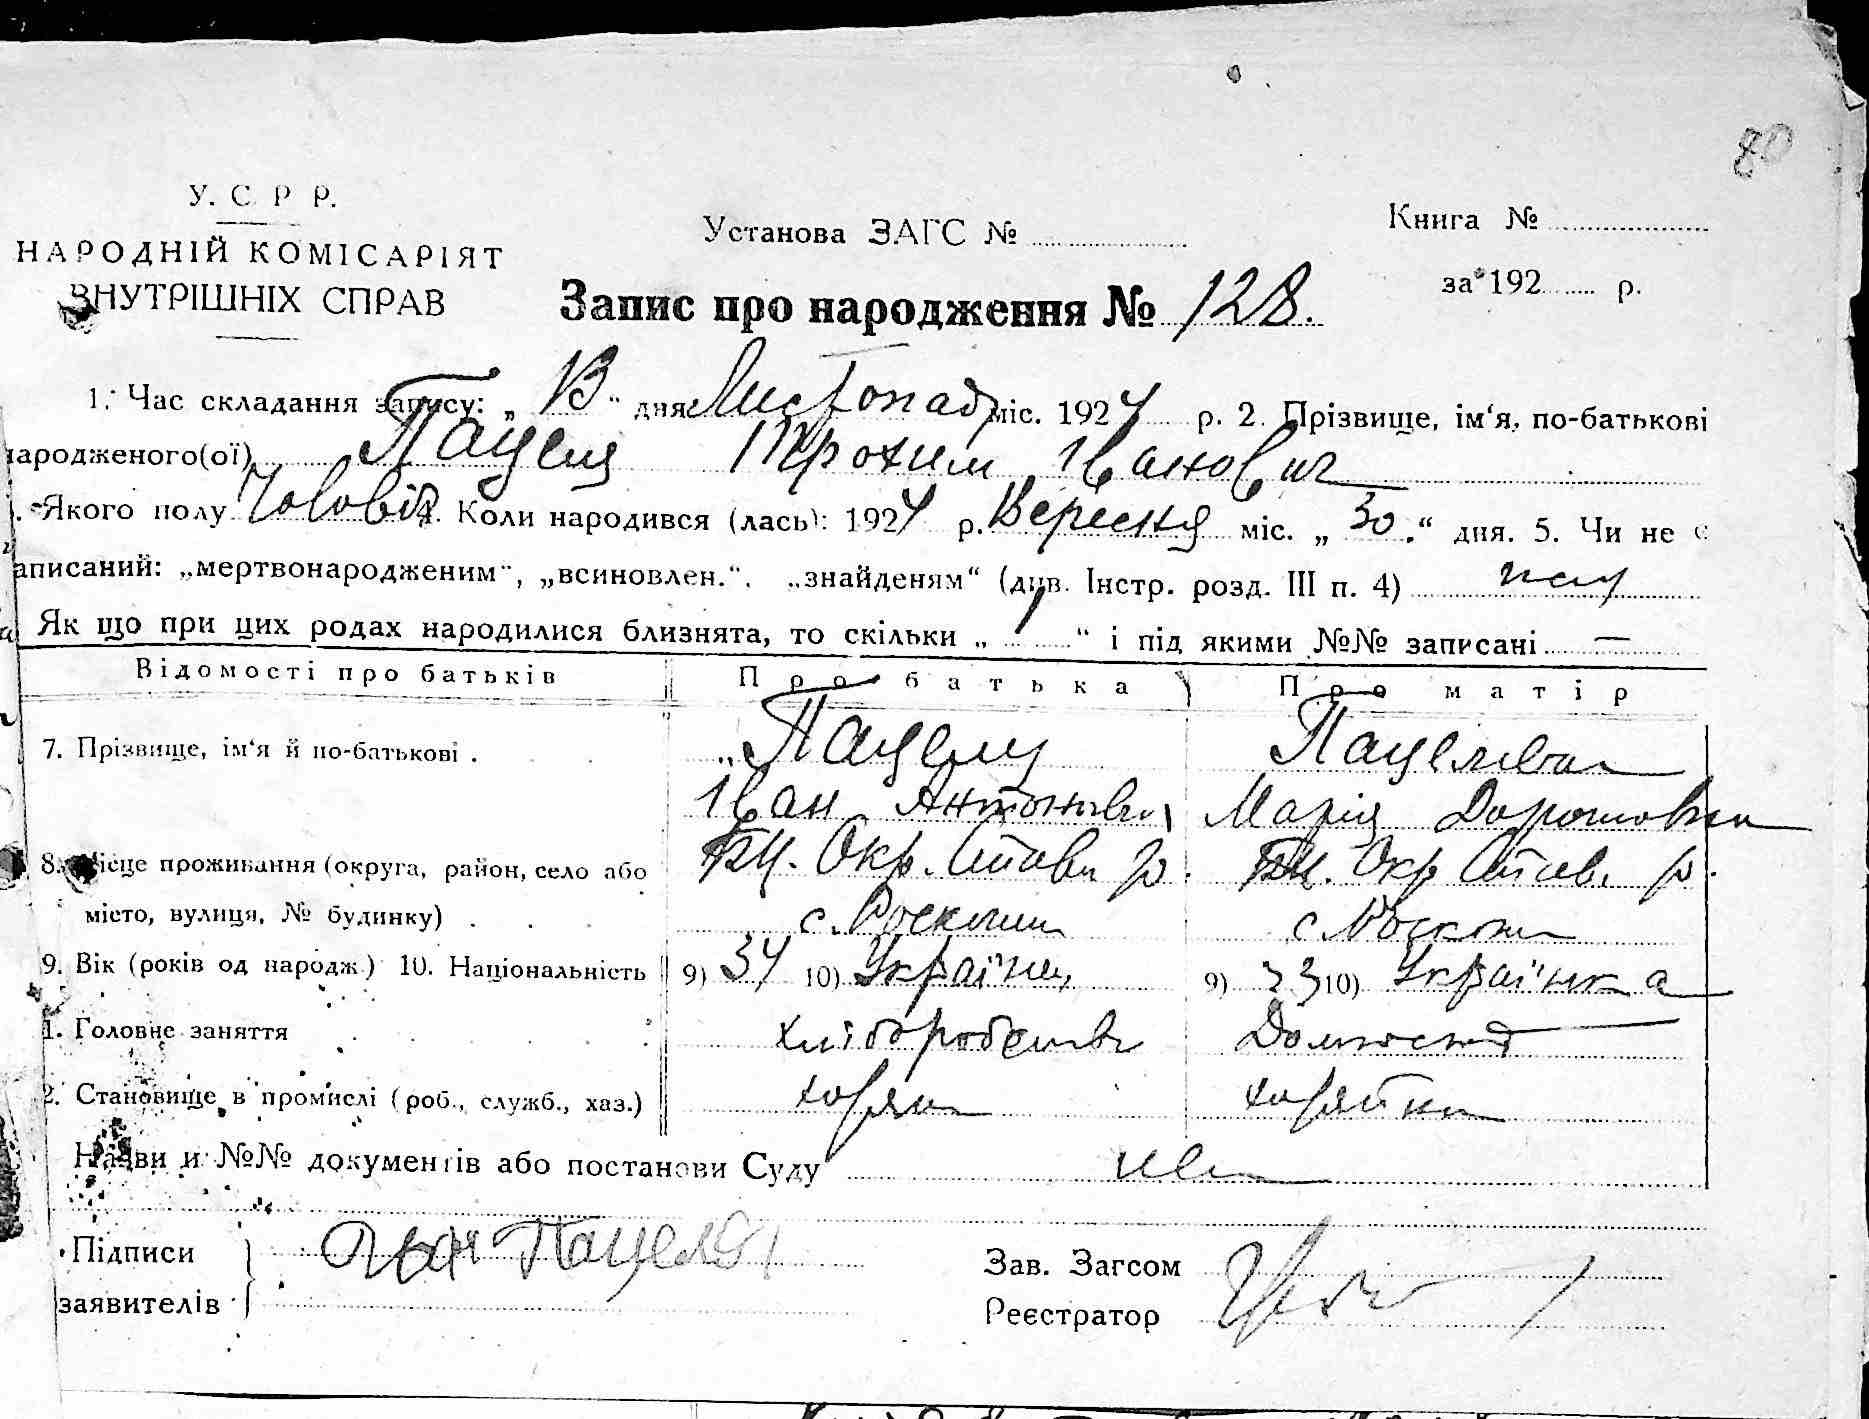 80
У. С. Р. Р.
НАРОДНІЙ КОМІСАРІЯТ
ВНУТРІШНІХ СПРАВ
Установа ЗАГС №
Книга №
за 192 р.
Запис про народження № 128.
1. Час складання запису: „ 13 " дня Листопад міс. 1924 р. 2. Прізвище, ім'я, по-батькові
народженого(ої) Пацеля Трохим Іванович
Якого полу Чоловіч. 4. Коли народився (лась): 1924 р. Вересня міс. „ 30 " дня. 5. Чи не є
записаний: „мертвонародженим", „всиновлен.", „знайденям" (див. Інстр. розд. III п. 4)
Як що при цих родах народилися близнята, то скільки „ 1 " і під якими №№ записані —
Відомості про батьків Про батька Про матір
7. Прізвище, ім'я й по-батькові . Пацеля Пацелева
Іван Антонович Марія Дорошовна
8. Місце проживання (округа, район, село або БЦ. Окр. Стави р. БЦ. Окр Став. р.
місто, вулиця, № будинку) . с. Роскошна с. Роскошна
9. Вік (років од народж.) 10. Національність 9) 34 10) Українец 9) 33 10) Українка
1. Головне заняття хліборобство Домаш
2. Становище в промислі (роб., служб., хаз.) хозяин хозяйка
Назви и №№ документів або постанови Суду нема
Підписи
заявителів
Иван Пацеля
Зав. Загсом
Реєстратор